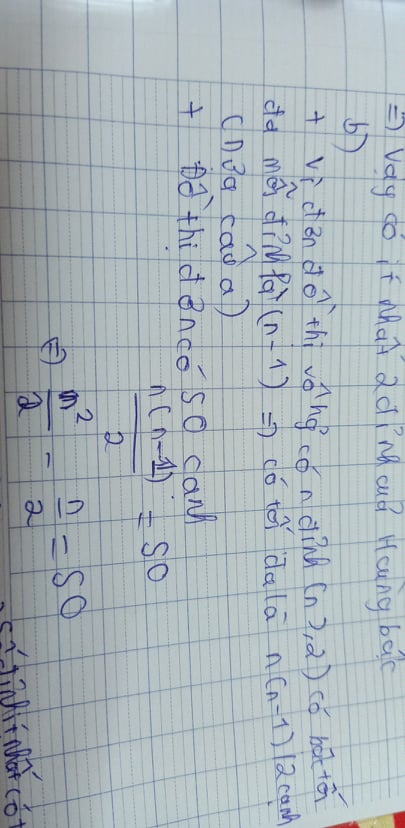 => Vậy có ít nhất 2 đỉnh cuả H cùng bậc
b)
+ Vì đơn đồ thị vô hg có n đỉnh (n ≥, 2) có bậc tối
đa mỗi đỉnh là (n-1) => có tối đa là n(n-1)/2 cạnh
(nửa câu a)
+ Đồ thị đơn có 50 cạnh
n(n-1)/2 = 50
<=> n²/2 - n/2 = 50
số đỉnh ít nhất có t